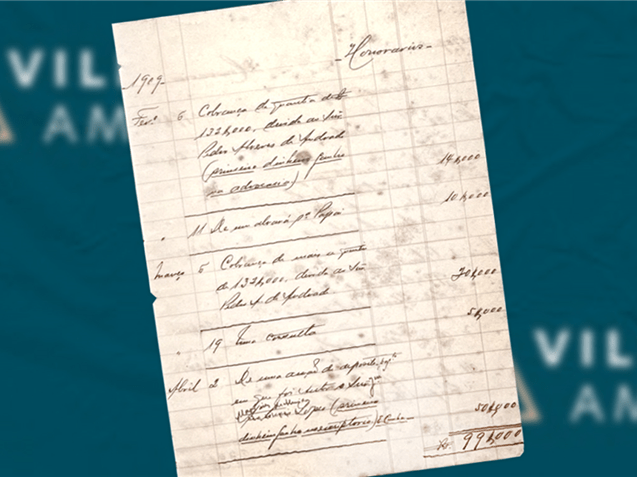 VIL
AM
Honorarios
1909
Fev.º 6 Cobrança da quantia de
133$,000, devida ao Snr
Pedro de Andrade
(primeiro dinheiro ganho
na advocacia) 14$,000
" 11 De um alvará pª Papai 10$,000
Março 5 Cobrança de mais a quantia
de 133$,000, devida ao Snr
Pedro de Andrade 20$,000
19 Uma consulta 5$,000
Abril 2 De uma acção de deposito
em que foi
Lopes (primeiro
dinheiro ganho no escriptorio) 50$,000
Rs. 99$,000
VIL
AM